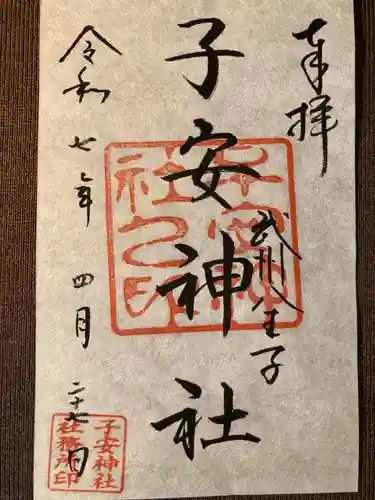 奉拝
武州八王子
子安神社
令和七年四月二十六日
子安神社之印
子安神社
社務所印